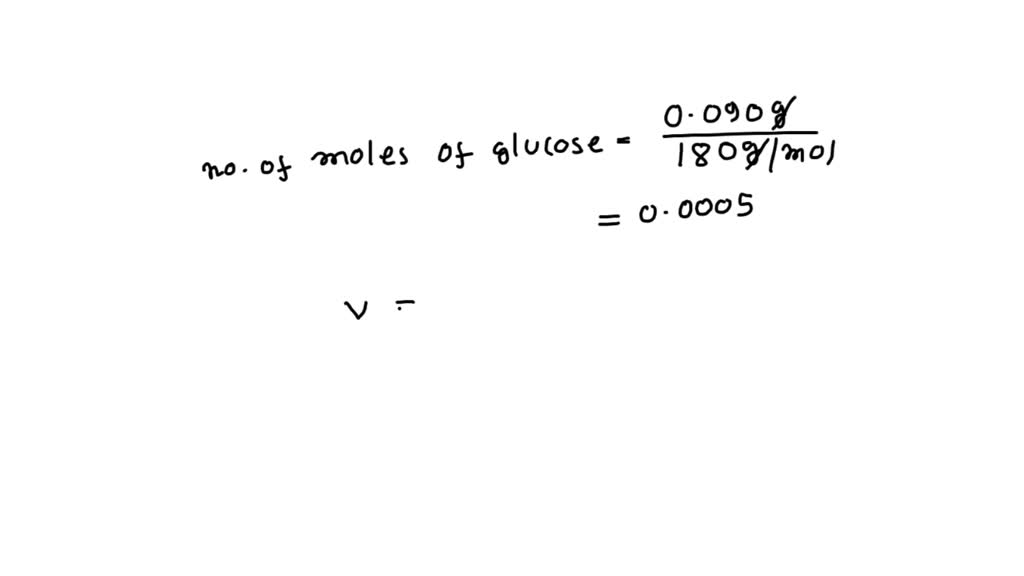 no. of moles of glucose = 0.090g / 180g/mol
= 0.0005
v =